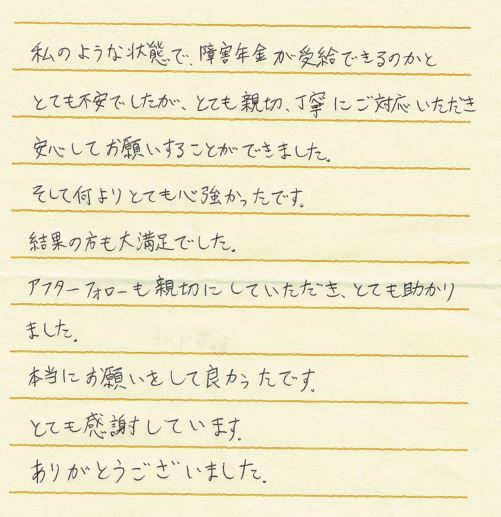 私のような状態で、障害年金が受給できるのかと
とても不安でしたが、とても親切、丁寧にご対応いただき
安心してお願いすることができました。
そして何よりとても心強かったです。
結果の方も大満足でした。
アフターフォローも親切にしていただき、とても助かり
ました。
本当にお願いをして良かったです。
とても感謝しています。
ありがとうございました。